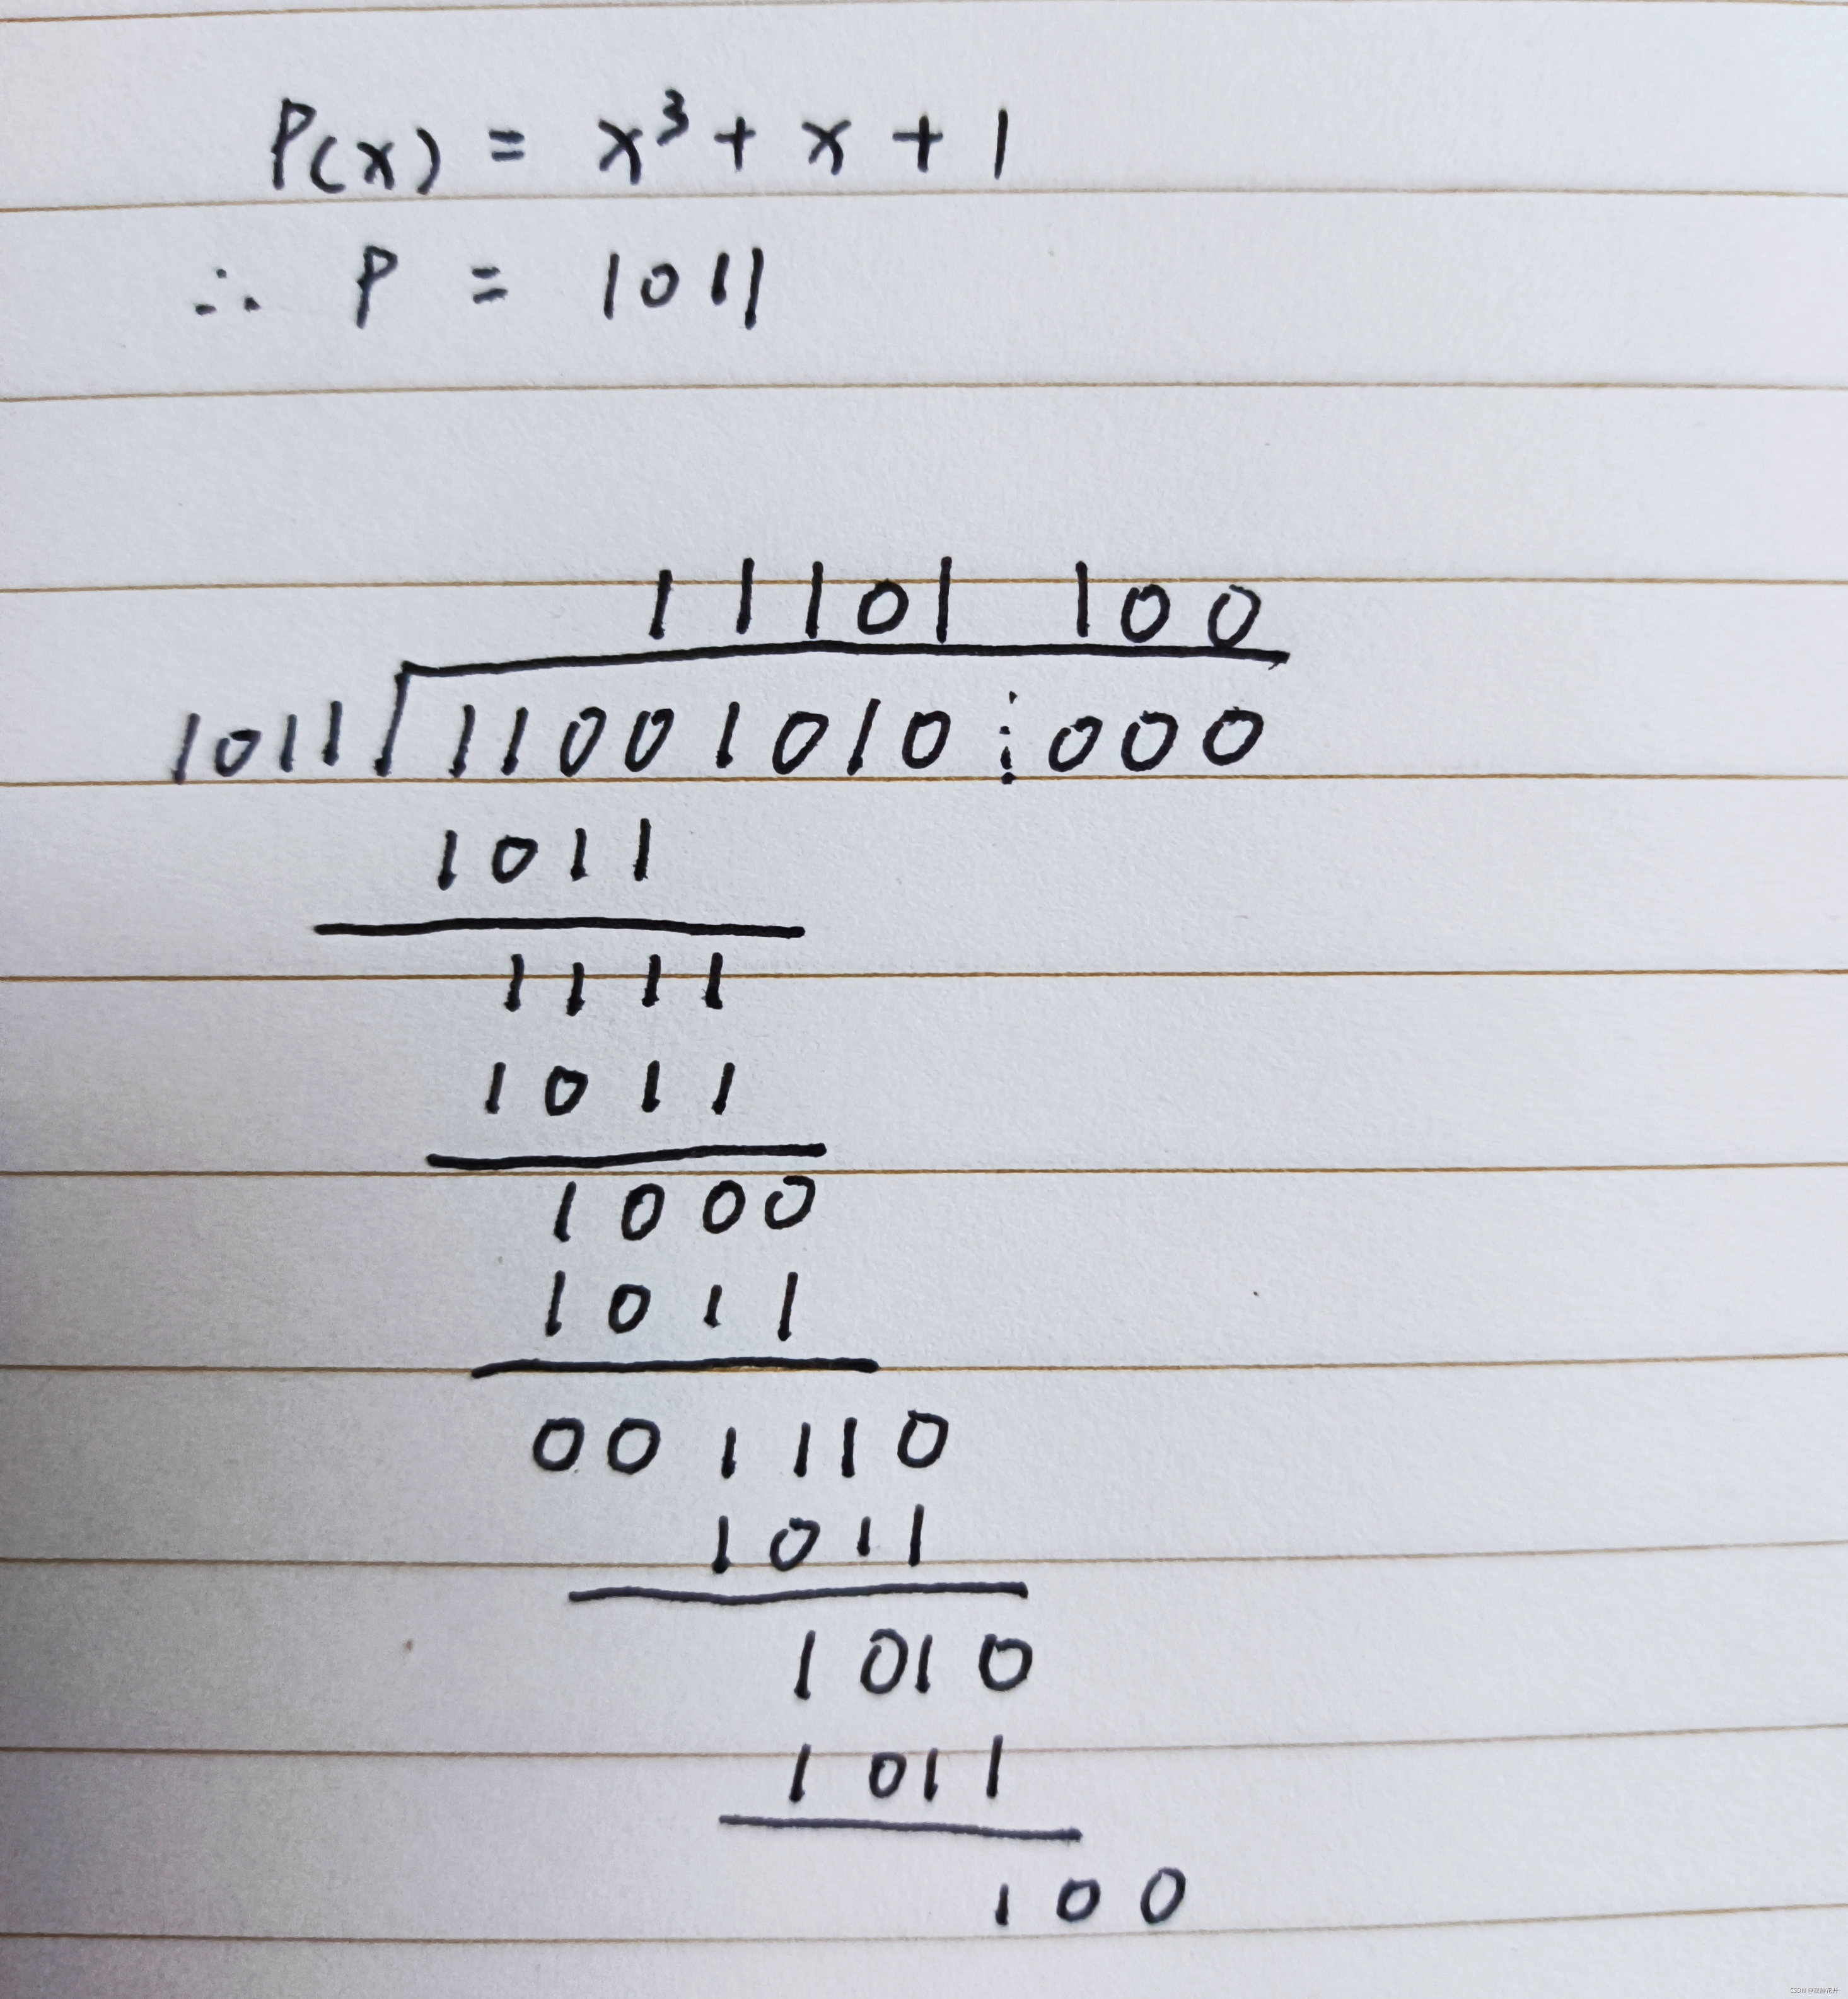 P(x) = x³ + x + 1
∴ P = 1011
11101 100
1011 11001010 000
1011
1111
1011
1000
1011
001110
1011
1010
1011
100